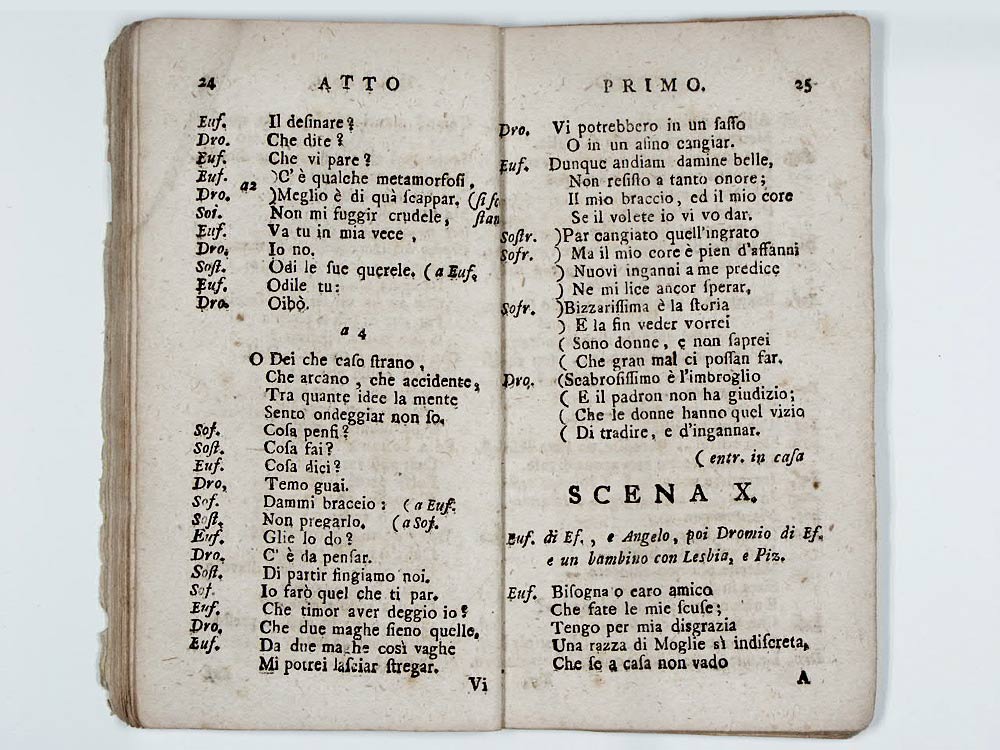 24 ATTO
Euf. Il deſinare?
Dro. Che dite?
Euf. Che vi pare?
Euf. )C'è qualche metamorfoſi,
a2
Dro. )Meglio è di quà ſcappar. (ſi ſc
Soſ. Non mi fuggir crudele, ſtan
Euf. Va tu in mia vece,
Dro. Io no.
Soſt. Odi le ſue querele. (a Euf.
Euf. Odile tu:
Dro. Oibò.
a 4
O Dei che caſo ſtrano,
Che arcano, che accidente,
Tra quante idee la mente
Sento ondeggiar non ſo.
Sof. Coſa penſi?
Soſt. Coſa fai?
Euf. Coſa dici?
Dro. Temo guai.
Sof. Dammi braccio: (a Euf.
Soſt. Non pregarlo. (a Sof.
Euf. Glie lo do?
Dro. C'è da penſar.
Soſt. Di partir fingiamo noi.
Sof. Io farò quel che ti par.
Euf. Che timor aver deggio io?
Dro. Che due maghe ſieno quelle.
Euf. Da due maghe così vaghe
Mi potrei laſciar ſtregar.
Vi
PRIMO. 25
Dro. Vi potrebbero in un ſaſſo
O in un aſino cangiar.
Euf. Dunque andiam damine belle,
Non reſiſto a tanto onore;
Il mio braccio, ed il mio core
Se il volete io vi vo dar.
Soſtr. )Par cangiato quell'ingrato
Sofr. ) Ma il mio core è pien d'affanni
) Nuovi inganni a me predice
) Ne mi lice ancor ſperar.
Sofr. )Bizzariſſima è la ſtoria
) E la fin veder vorrei
( Sono donne, e non ſaprei
( Che gran mal ci poſſan far.
Dro. (Scabroſiſſimo è l'imbroglio
( E il padron non ha giudizio;
( Che le donne hanno quel vizio
( Di tradire, e d'ingannar.
(entr. in caſa
SCENA X.
Euf. di Ef., e Angelo, poi Dromio di Ef.
e un bambino con Lesbia, e Piz.
Euf. Biſogna o caro amico
Che fate le mie ſcuſe;
Tengo per mia disgrazia
Una razza di Moglie sì indiſcreta,
Che ſe a caſa non vado
A